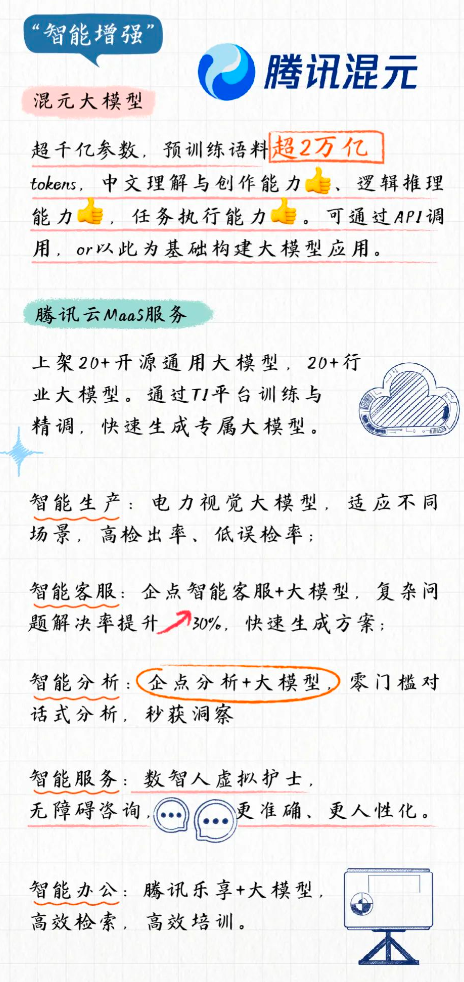 “智能增强”
腾讯混元
混元大模型
超千亿参数，预训练语料超2万亿
tokens，中文理解与创作能力👍、逻辑推理
能力👍，任务执行能力👍。可通过API调
用，or以此为基础构建大模型应用。
腾讯云MaaS服务
上架20+开源通用大模型，20+行
业大模型。通过TI平台训练与
精调，快速生成专属大模型。
智能生产：电力视觉大模型，适应不同
场景，高检出率、低误检率；
智能客服：企点智能客服+大模型，复杂问
题解决率提升30%，快速生成方案；
智能分析：企点分析+大模型，零门槛对
话式分析，秒获洞察
智能服务：数智人虚拟护士，
无障碍咨询，更准确、更人性化。
智能办公：腾讯乐享+大模型，
高效检索，高效培训。